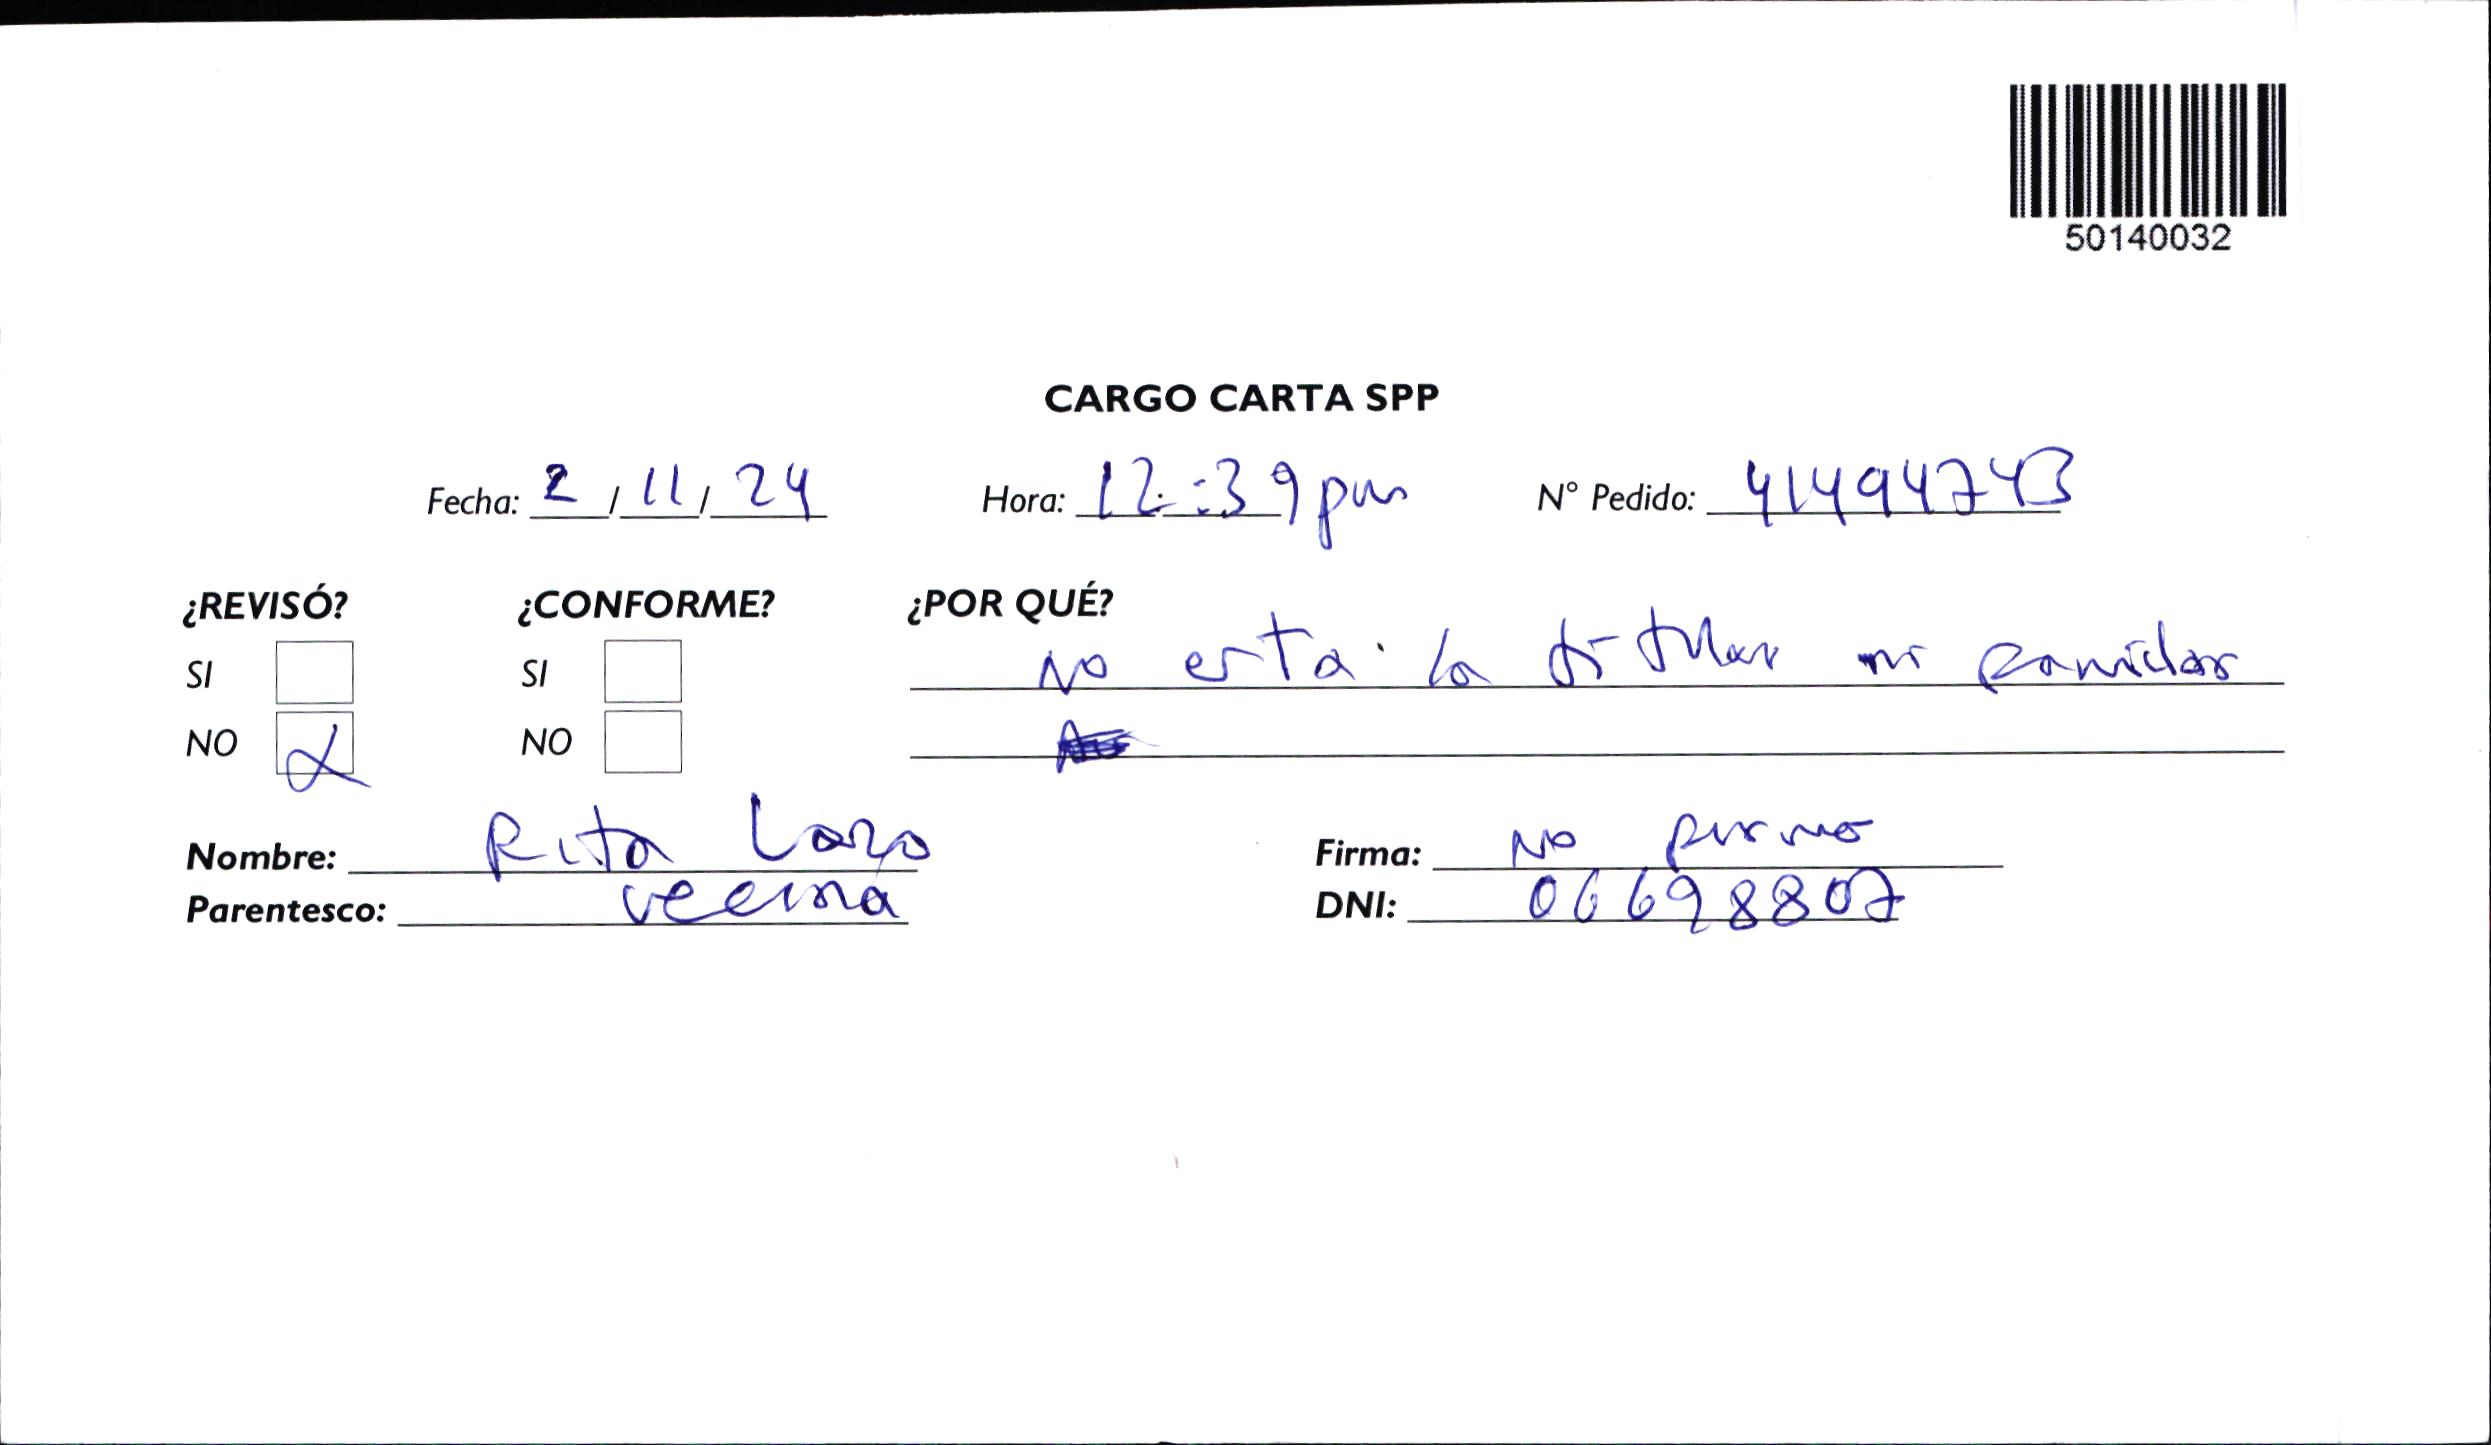 50140032
CARGO CARTA SPP
Fecha: 2 / 11 / 24 Hora: 12:39 pm N° Pedido: 41494743
¿REVISÓ? ¿CONFORME? ¿POR QUÉ?
SI SI No esta la titular ni familiar
NO X NO
Nombre: Rita Lazo Firma: No firmo
Parentesco: vecina DNI: 06698807